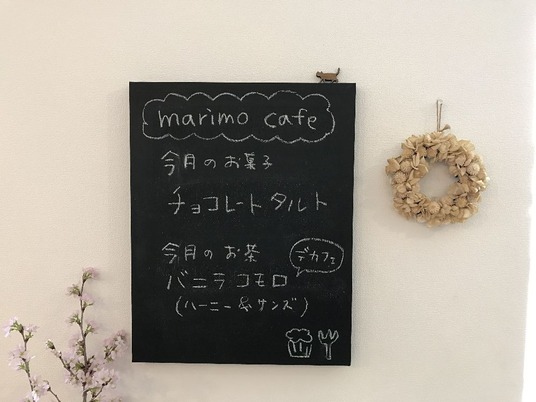 marimo cafe
今月のお菓子
チョコレートタルト
今月のお茶
デカフェ
バニラコモロ
(ハーニー&サンズ)